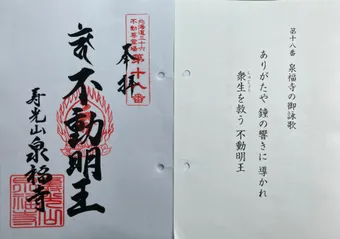 北海道三十六
不動尊霊場
第十八番
奉拝
不動明王
寿光山
泉福寺
第十八番 泉福寺の御詠歌
ありがたや 鐘の響きに 導かれ
衆生を救う 不動明王